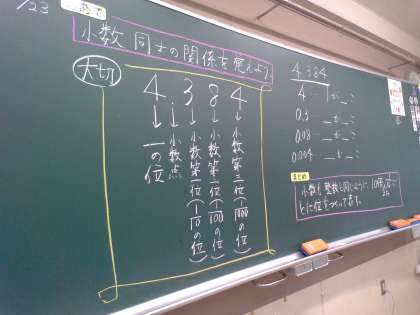 /23
めあて
小数同士の関係を覚えよう。
大切
4.384
4 → 一の位
. → 小数点
3 → 小数第一位(1/10の位)
8 → 小数第二位(1/100の位)
4 → 小数第三位(1/1000の位)
4.384
4 … 1が__こ
0.3 … __が__こ
0.08 … __が__こ
0.004 … __が__こ
まとめ
小数も整数と同じように 10倍、1/10
とに位をつくって表す。